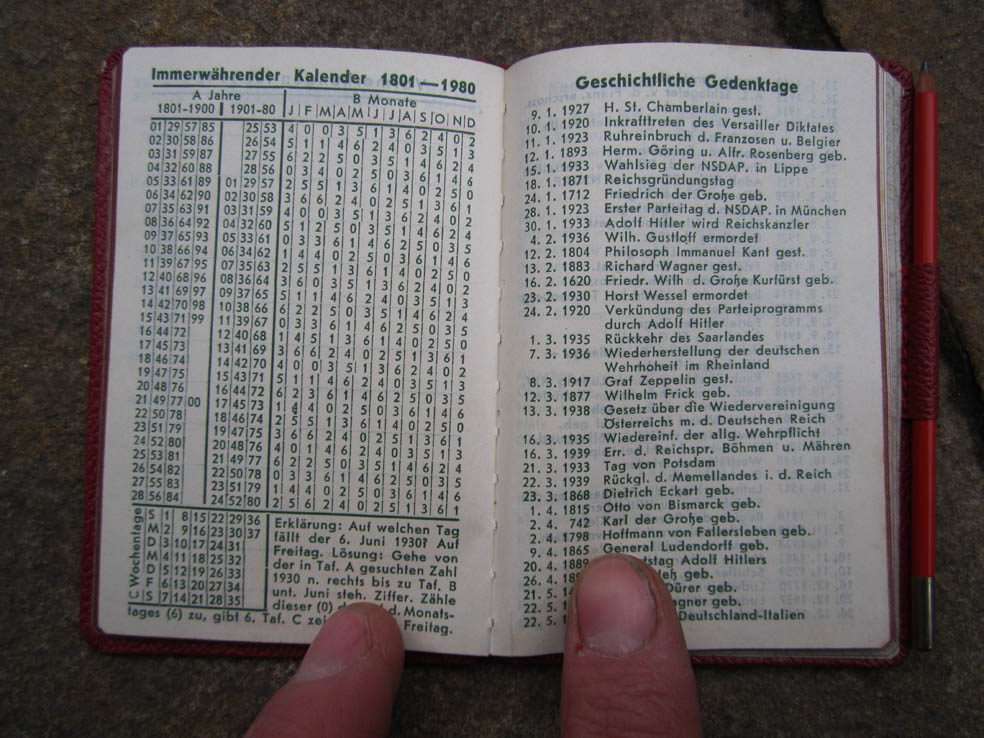 Immerwährender Kalender 1801—1980
A Jahre B Monate
1801-1900 1901-80 J F M A M J J A S O N D
01 29 57 85 25 53 4 0 0 3 5 1 3 6 2 4 0 2
02 30 58 86 26 54 5 1 1 4 6 2 4 0 3 5 1 3
03 31 59 87 27 55 6 2 2 5 0 3 5 1 4 6 2 4
04 32 60 88 28 56 0 3 4 0 2 5 0 3 6 1 4 6
05 33 61 89 01 29 57 2 5 5 1 3 6 1 4 0 2 5 0
06 34 62 90 02 30 58 3 6 6 2 4 0 2 5 1 3 6 1
07 35 63 91 03 31 59 4 0 0 3 5 1 3 6 2 4 0 2
08 36 64 92 04 32 60 5 1 2 5 0 3 5 1 4 6 2 4
09 37 65 93 05 33 61 0 3 3 6 1 4 6 2 5 0 3 5
10 38 66 94 06 34 62 1 4 4 0 2 5 0 3 6 1 4 6
11 39 67 95 07 35 63 2 5 5 1 3 6 1 4 0 2 5 0
12 40 68 96 08 36 64 3 6 0 3 5 1 3 6 2 4 0 2
13 41 69 97 09 37 65 5 1 1 4 6 2 4 0 3 5 1 3
14 42 70 98 10 38 66 6 2 2 5 0 3 5 1 4 6 2 4
15 43 71 99 11 39 67 0 3 3 6 1 4 6 2 5 0 3 5
16 44 72 12 40 68 1 4 5 1 3 6 1 4 0 2 5 0
17 45 73 13 41 69 3 6 6 2 4 0 2 5 1 3 6 1
18 46 74 14 42 70 4 0 0 3 5 1 3 6 2 4 0 2
19 47 75 15 43 71 5 1 1 4 6 2 4 0 3 5 1 3
20 48 76 16 44 72 6 2 3 6 1 4 6 2 5 0 3 5
21 49 77 00 17 45 73 1 4 4 0 2 5 0 3 6 1 4 6
22 50 78 18 46 74 2 5 5 1 3 6 1 4 0 2 5 0
23 51 79 19 47 75 3 6 6 2 4 0 2 5 1 3 6 1
24 52 80 20 48 76 4 0 1 4 6 2 4 0 3 5 1 3
25 53 81 21 49 77 6 2 2 5 0 3 5 1 4 6 2 4
26 54 82 22 50 78 0 3 3 6 1 4 6 2 5 0 3 5
27 55 83 23 51 79 1 4 4 0 2 5 0 3 6 1 4 6
28 56 84 24 52 80 2 5 6 2 4 0 2 5 1 3 6 1
C Wochentage
S 1 8 15 22 29 36
M 2 9 16 23 30 37
D 3 10 17 24 31
M 4 11 18 25 32
D 5 12 19 26 33
F 6 13 20 27 34
S 7 14 21 28 35
Erklärung: Auf welchen Tag
fällt der 6. Juni 1930? Auf
Freitag. Lösung: Gehe von
der in Taf. A gesuchten Zahl
1930 n. rechts bis zu Taf. B
unt. Juni steh. Ziffer. Zähle
dieser (0) d. Monats-
tages (6) zu, gibt 6. Taf. C Freitag.
Geschichtliche Gedenktage
9. 1. 1927 H. St. Chamberlain gest.
10. 1. 1920 Inkrafttreten des Versailler Diktates
11. 1. 1923 Ruhreinbruch d. Franzosen u. Belgier
12. 1. 1893 Herm. Göring u. Alfr. Rosenberg geb.
15. 1. 1933 Wahlsieg der NSDAP. in Lippe
18. 1. 1871 Reichsgründungstag
24. 1. 1712 Friedrich der Große geb.
28. 1. 1923 Erster Parteitag d. NSDAP. in München
30. 1. 1933 Adolf Hitler wird Reichskanzler
4. 2. 1936 Wilh. Gustloff ermordet
12. 2. 1804 Philosoph Immanuel Kant gest.
13. 2. 1883 Richard Wagner gest.
16. 2. 1620 Friedr. Wilh d. Große Kurfürst geb.
23. 2. 1930 Horst Wessel ermordet
24. 2. 1920 Verkündung des Parteiprogramms
durch Adolf Hitler
1. 3. 1935 Rückkehr des Saarlandes
7. 3. 1936 Wiederherstellung der deutschen
Wehrhoheit im Rheinland
8. 3. 1917 Graf Zeppelin gest.
12. 3. 1877 Wilhelm Frick geb.
13. 3. 1938 Gesetz über die Wiedervereinigung
Österreichs m. d. Deutschen Reich
16. 3. 1935 Wiedereinf. der allg. Wehrpflicht
16. 3. 1939 Err. d. Reichspr. Böhmen u. Mähren
21. 3. 1933 Tag von Potsdam
22. 3. 1939 Rückgl. d. Memellandes i. d. Reich
23. 3. 1868 Dietrich Eckart geb.
1. 4. 1815 Otto von Bismarck geb.
2. 4. 742 Karl der Große geb.
2. 4. 1798 Hoffmann von Fallersleben geb.
9. 4. 1865 General Ludendorff geb.
20. 4. 1889 tstag Adolf Hitlers
26. 4. geb.
21. 5. Dürer geb.
22. 5. gner geb.
22. 5. Deutschland-Italien